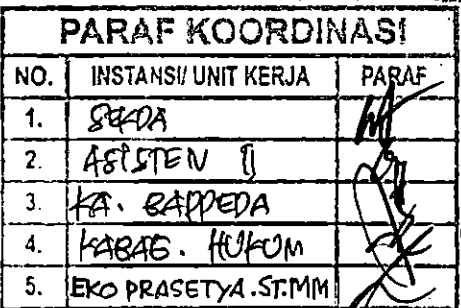 PARAF KOORDINASI
NO. INSTANSI/ UNIT KERJA PARAF
1. SEKDA
2. ASISTEN II
3. KA. BAPPEDA
4. KABAG. HUKUM
5. EKO PRASETYA.ST.MM